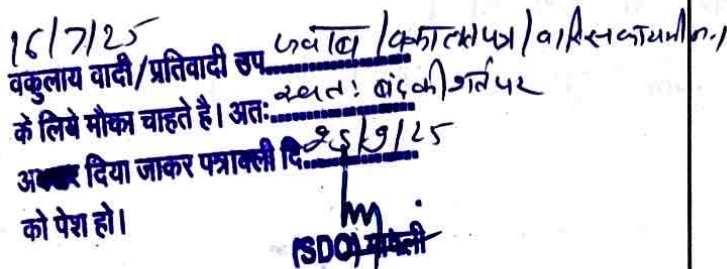 16/7/25
वकुलाय वादी/प्रतिवादी उप जवाब/वकालतपत्र/वारिसकायमी
के लिये मौका चाहते है। अतः स्वतः बंद की शर्त पर
अवसर दिया जाकर पत्रावली दि. 25/9/25
को पेश हो।
(SDO) मावली